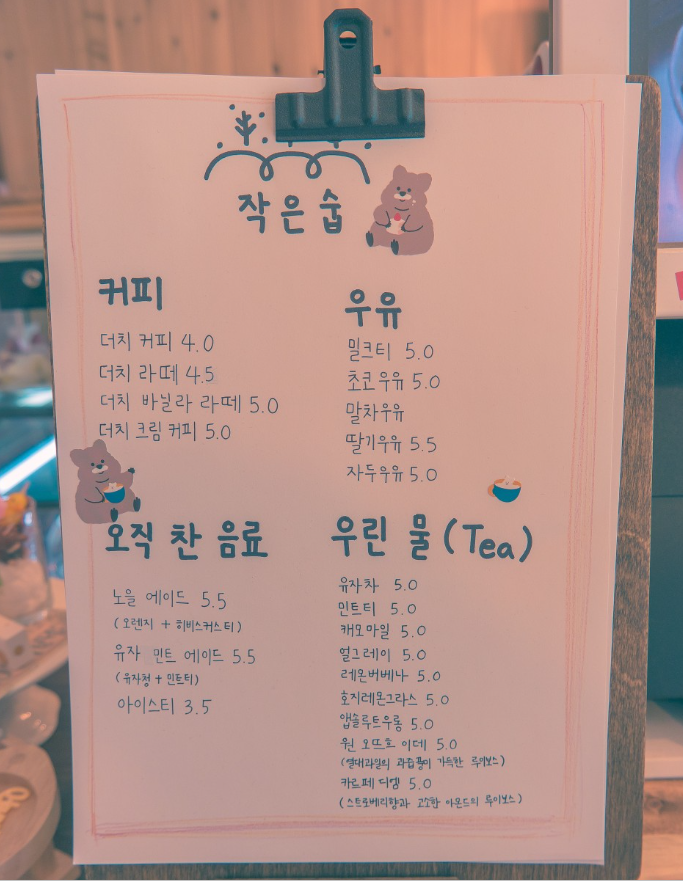 작은 숲
커피
더치 커피 4.0
더치 라떼 4.5
더치 바닐라 라떼 5.0
더치 크림 커피 5.0
우유
밀크티 5.0
초코우유 5.0
말차우유
딸기우유 5.5
자두우유 5.0
오직 찬 음료
노을 에이드 5.5
(오렌지 + 히비스커스티)
유자 민트 에이드 5.5
(유자청 + 민트티)
아이스티 3.5
우린 물 (Tea)
유자차 5.0
민트티 5.0
캐모마일 5.0
얼그레이 5.0
레몬버베나 5.0
호지레몬그라스 5.0
앱솔루트우롱 5.0
원 오뜨흐 이데 5.0
(열대과일의 과즙풍미 가득한 루이보스)
카르페 디엠 5.0
(스트로베리향과 고소한 아몬드의 루이보스)